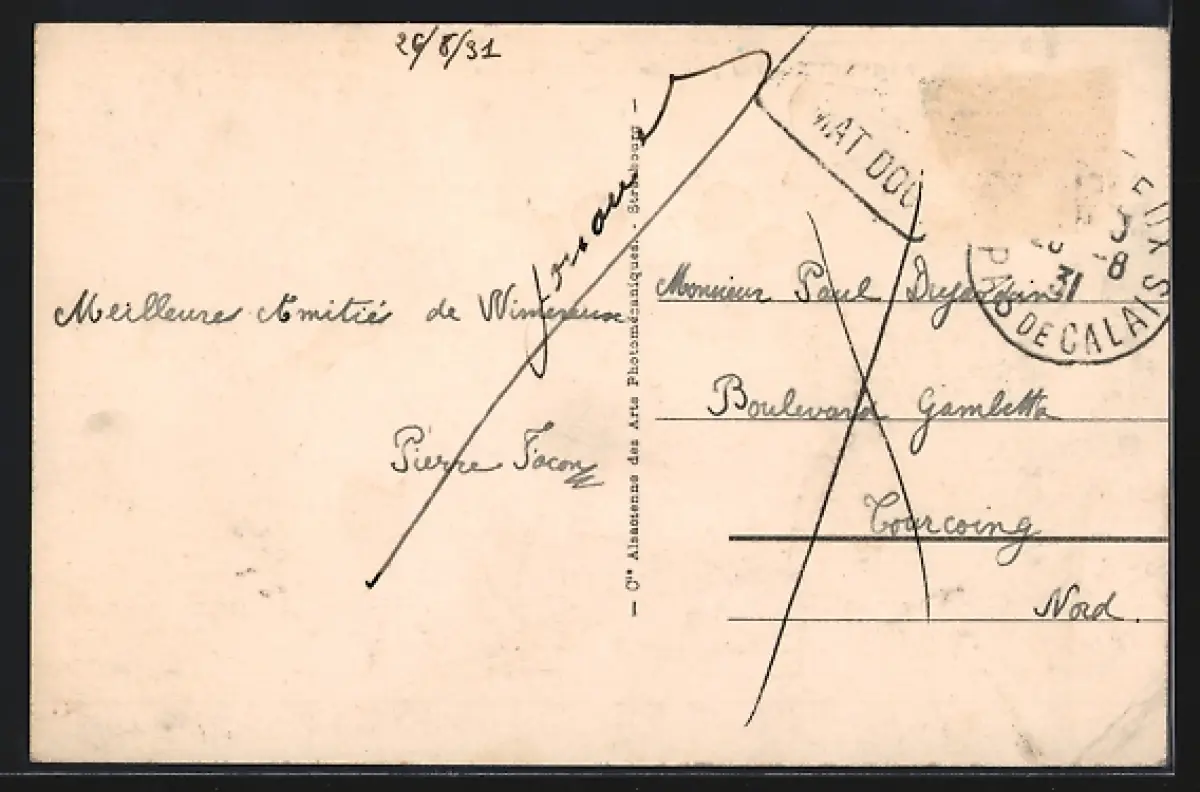 26/8/31
Meilleures Amitiés de Wimereux
Pierre Facon
— Cie Alsacienne des Arts Photomécaniques. - Strasbourg —
MAT DOU
EUX
31 -8
PAS DE CALAIS
Monsieur Paul Dujardin
Boulevard Gambetta
Tourcoing
Nord.